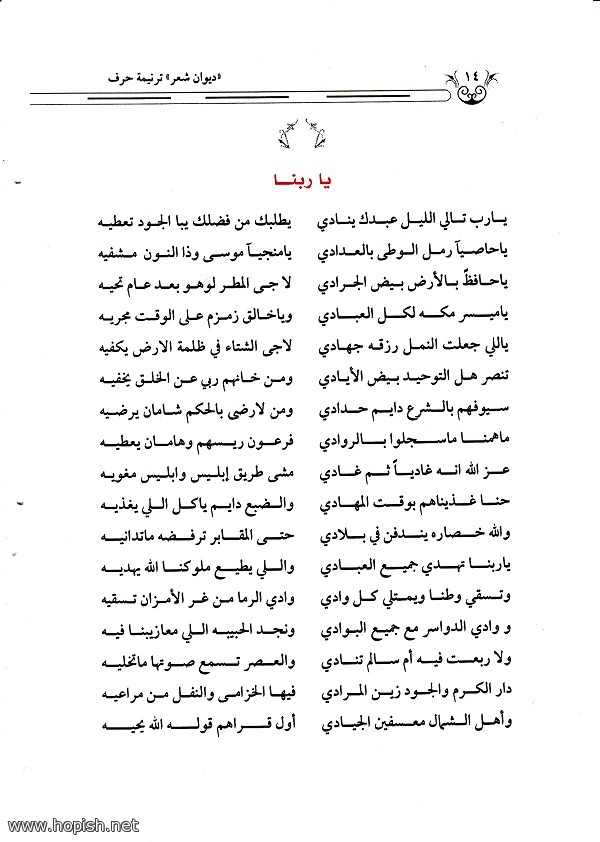 ١٤
«ديوان شعر» ترنيمة حرف
يا ربنـــا
يـارب تـالي الليـل عبـدك ينـادي يطلبـك من فضلـك يبـا الجـود تعطيـه
ياحاصيـآ رمـل الـوطى بالعـدادي يامنجيـآ موسـى وذا النـون مـشفيه
ياحـافظً بـالأرض بـيض الجـرادي لا جـى المطـر لوهـو بعـد عـام تحيـه
ياميـسر مكـه لكـل العبـادي وياخالق زمـزم على الوقت مجريـه
ياللي جعلت النمـل رزقـه جهـادي لاجى الشتاء في ظلمة الارض يكفيه
تنصر هـل التوحيـد بيض الأيـادي ومـن خـانهم ربي عـن الخلـق يخفيـه
سـيوفهم بالـشرع دايـم حـدادي ومن لارضى بالحكم شامان يرضيـه
ماهمنـا ماسـجلوا بـالروادي فرعـون ريـسهم وهامـان يعطيـه
عـز الله انـه غاديـاً ثـم غـادي مشى طريق إبليس وابليس مغويـه
حنـا غـذيناهم بوقـت المهـادي والـضبع دايم ياكـل الـلي يغذيـه
والله خـصاره ينـدفن في بـلادي حتـى المقـابر ترفـضه ماتدانيـه
ياربنـا تهـدي جميـع العبـادي والـلي يطيـع ملوكنـا الله يهديـه
وتـسقي وطنـا ويمتـلي كـل وادي وادي الرما مـن غـر الأمـزان تسقيه
و وادي الدواسر مع جميع البـوادي ونجـد الحبيبـه الـلي معازيبنـا فيـه
ولا ربعـت فيـه أم سـالم تنـادي والعـصر تـسمع صـوتها ماتخليـه
دار الكـرم والجـود زيـن المـرادي فيها الخزامـى والنفـل مـن مراعيـه
وأهـل الـشمال معـسفين الجيـادي أول قـراهم قولـه الله يحييـه
www.hopish.net